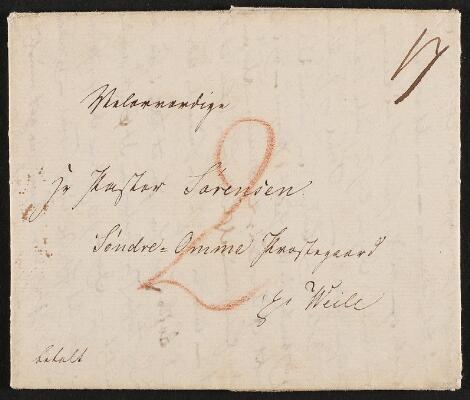 Velærværdige
Hr Pastor Sørensen.
Søndre-Omme Præstegaard
pr Weile
betalt
2